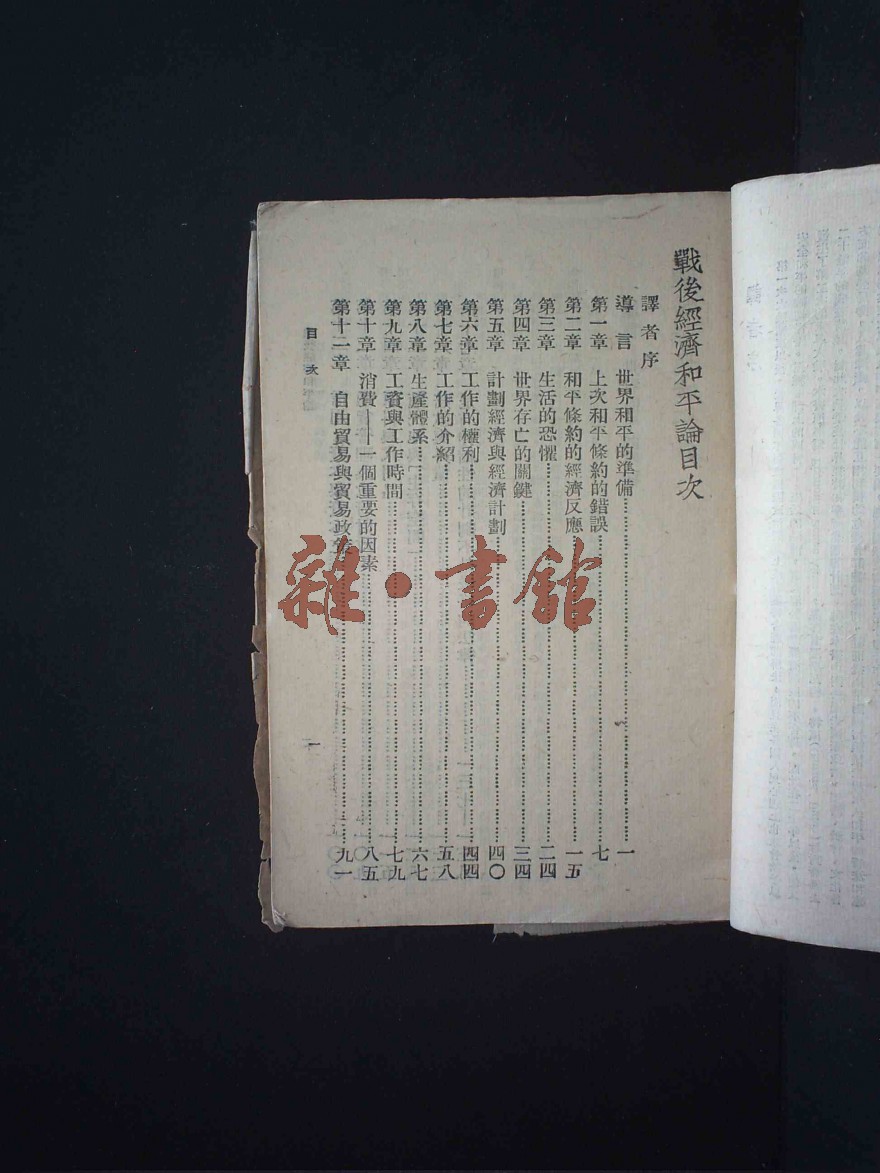 戰後經濟和平論目次
譯者序
導言 世界和平的準備……一
第一章 上次和平條約的錯誤……七
第二章 和平條約的經濟反應……一五
第三章 生活的恐懼……二四
第四章 世界存亡的關鍵……三四
第五章 計劃經濟與經濟計劃……四〇
第六章 工作的權利……四四
第七章 工作的介紹……五八
第八章 生產體系……六七
第九章 工資與工作時間……七九
第十章 消費——一個重要的因素……八五
第十二章 自由貿易與貿易政策……九一
目次
一
雜·書館